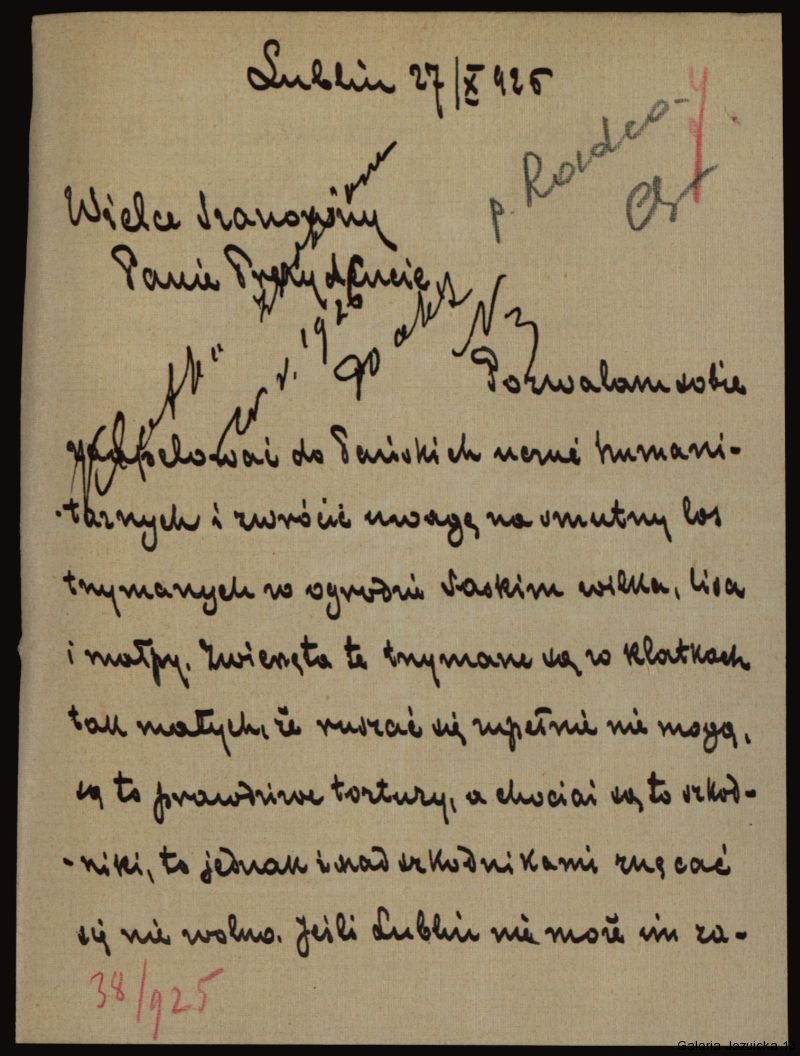 Lublin 27/X 925
p. Radca
Wielce Szanowny
Panie Prezydencie,
w r. 1926
do akt
Pozwalam sobie
zaapelować do Pańskich uczuć humani-
-tarnych i zwrócić uwagę na smutny los
trzymanych w ogrodzie Saskim wilka, lisa
i małpy. Zwierzęta te trzymane są w klatkach
tak małych, że ruszać się zupełnie nie mogą,
są to prawdziwe tortury, a chociaż są to szkod-
-niki, to jednak i nad szkodnikami znęcać
się nie wolno. Jeśli Lublin nie może im za-
38/925
Galeria Jezuicka